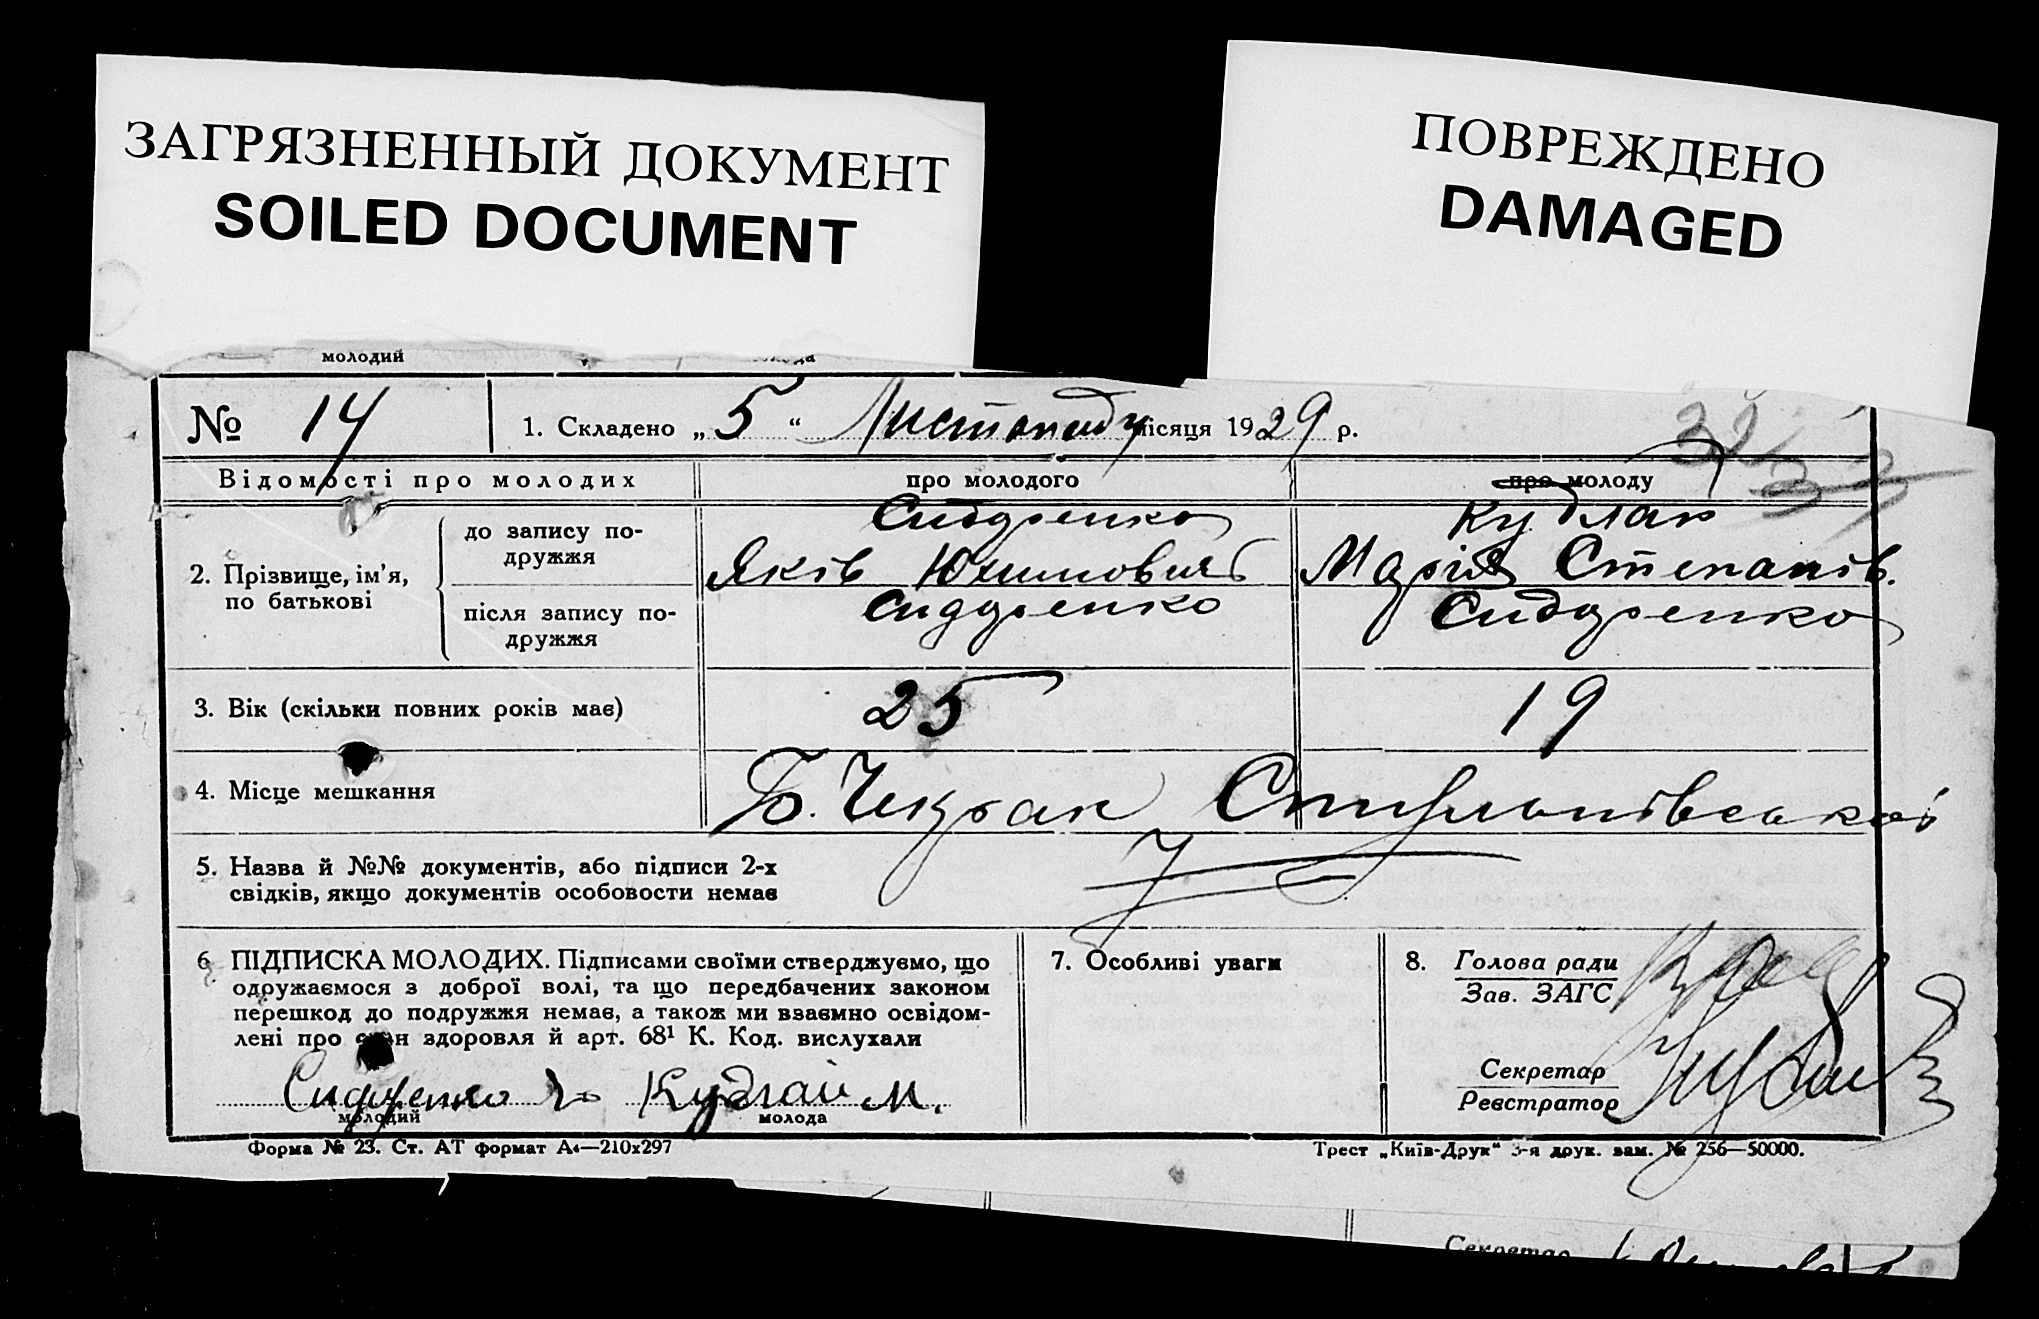 ЗАГРЯЗНЕННЫЙ ДОКУМЕНТ
SOILED DOCUMENT
ПОВРЕЖДЕНО
DAMAGED
молодий
№ 14 1. Складено „5“ Листопаду місяця 1929 р.
Відомості про молодих про молодого про молоду
2. Прізвище, ім’я, по батькові
до запису подружжя
Сидоренко
Яків
Кудлай
Марія Степанів.
після запису по-
дружжя
Сидоренко
Сидоренко
3. Вік (скільки повних років має) 25 19
4. Місце мешкання Б. Чекрак
5. Назва й №№ документів, або підписи 2-х
свідків, якщо документів особовости немає
6 ПІДПИСКА МОЛОДИХ. Підписами своїми стверджуємо, що
одружаємося з доброї волі, та що передбачених законом
перешкод до подружжя немає, а також ми взаємно освідом-
лені про стан здоровля й арт. 68¹ К. Код. вислухали
Сидоренко Кудлай М.
молодий молода
7. Особливі уваги
8. Голова ради
Зав. ЗАГС
Секретар
Реєстратор
Форма № 23. Ст. АТ формат А4—210х297
Трест „Київ-Друк“ 3-я друк. зам. № 256—50000.
Секретар